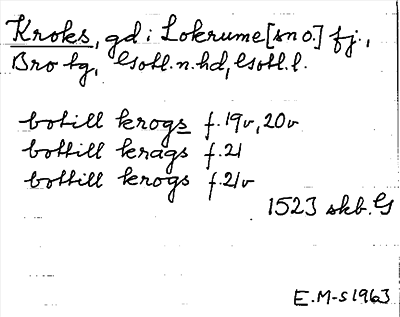 Kroks, gd i Lokrume [sn o.] fj.,
Bro tg, Gotl. n. hd, Gotl. l.
botill krogs f. 19v, 20v
bottill krags f. 21
bottill krogs f. 21v
1523 skb. G
E. M-s 1963